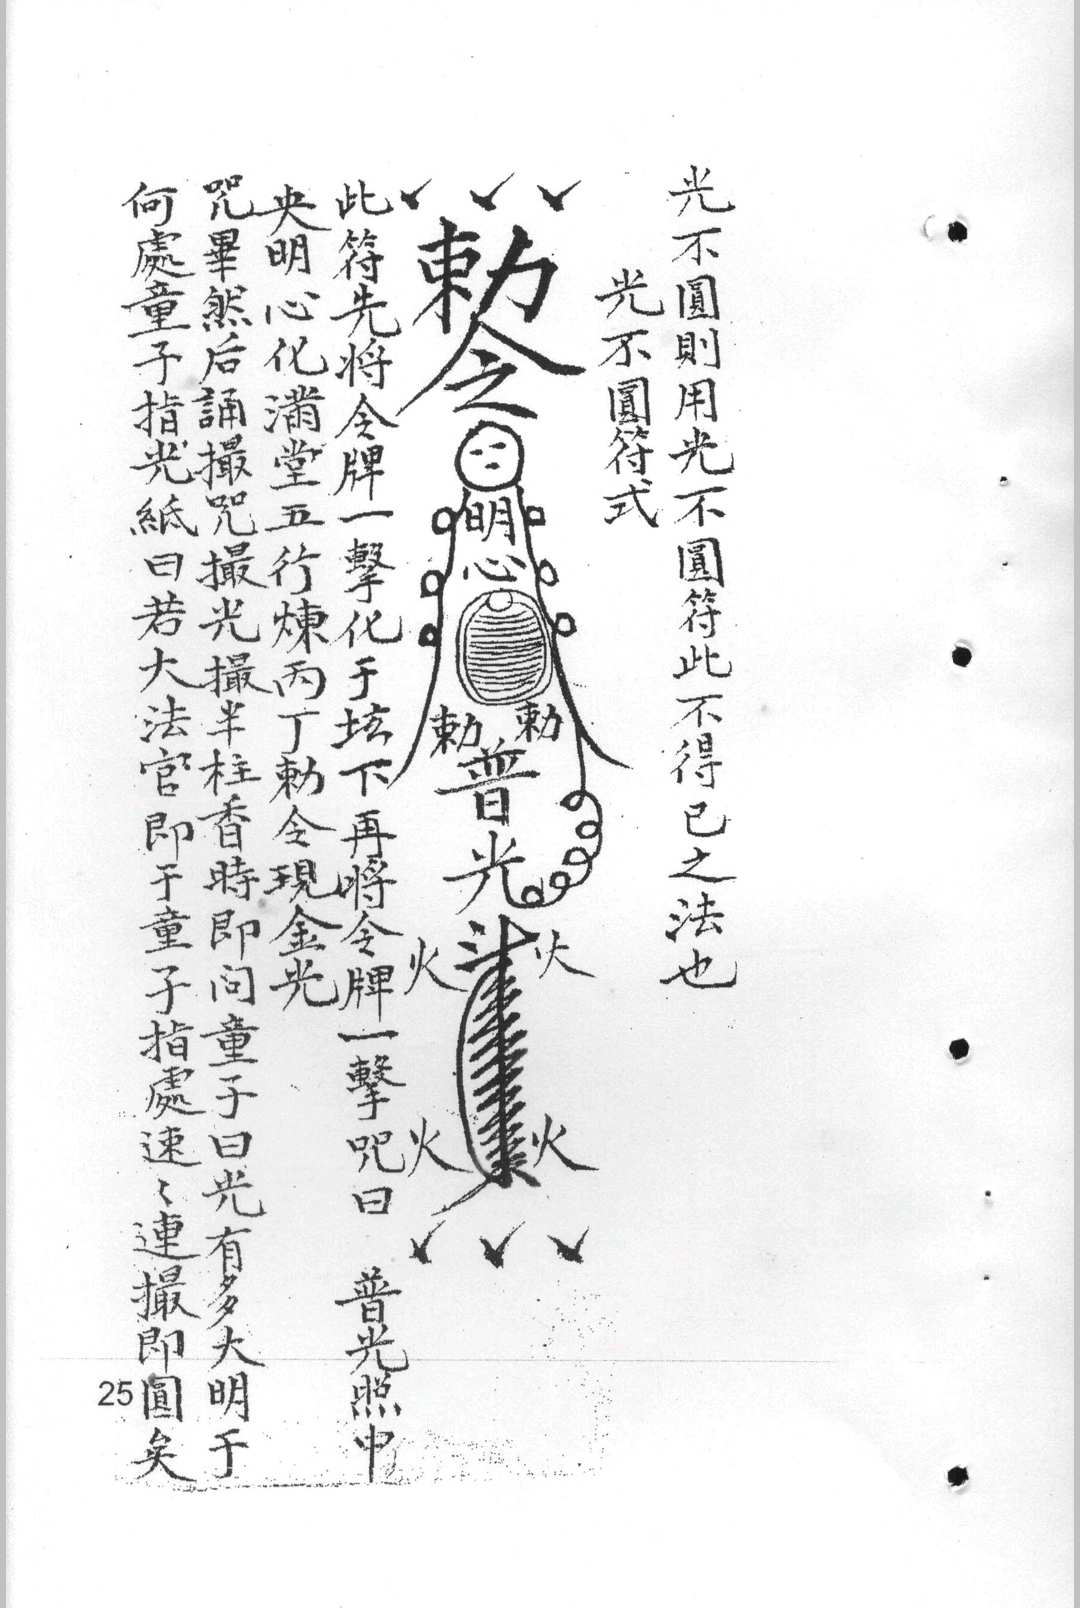 光不圓則用光不圓符此不得已之法也
光不圓符式
勅令
明心
勅 勅
普光
斗
火 火
火 火
此符先将令牌一擊化于坛下再将令牌一擊咒曰 普光照中
央明心化满堂五行煉丙丁勅令現金光
咒畢然后誦撮咒撮光撮半柱香時即问童子曰光有多大明于
何處童子指光紙曰若大法官即于童子指處速〻連撮即圓矣
25